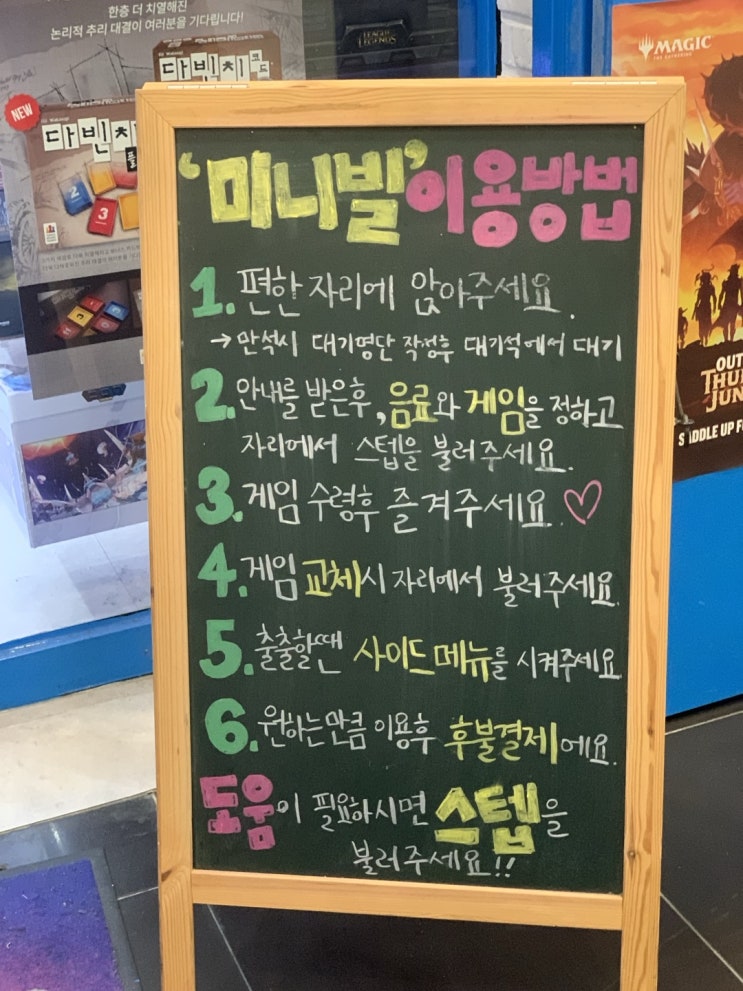 한층 더 치열해진
논리적 추리 대결이 여러분을 기다립니다!
다빈치코드
NEW
다빈치
2
3
LEAGUE
LEGENDS
MAGIC
THE GATHERING
'미니빌' 이용방법
1. 편한 자리에 앉아주세요.
→ 만석시 대기명단 작성후 대기석에서 대기
2. 안내를 받은후, 음료와 게임을 정하고
자리에서 스텝을 불러주세요.
3. 게임 수령후 즐겨주세요. ♡
4. 게임 교체시 자리에서 불러주세요.
5. 출출할땐 사이드메뉴를 시켜주세요
6. 원하는만큼 이용후 후불결제에요.
도움이 필요하시면 스텝을
불러주세요!!
OUT
THU
JUN
SADDLE UP F